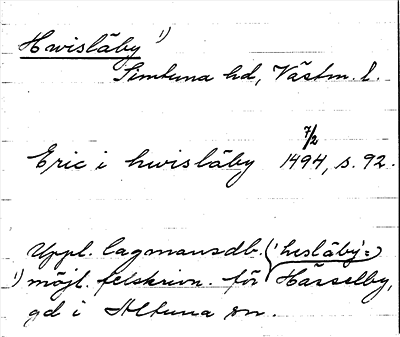 Hwisläby 1)
Simtuna hd, Västm. l.
7/2
Eric i hwisläby 1494, s. 92.
Uppl. lagmansdb. ('hesläby':)
1) möjl. felskrivn. för Härselby,
gd i Altuna sn.